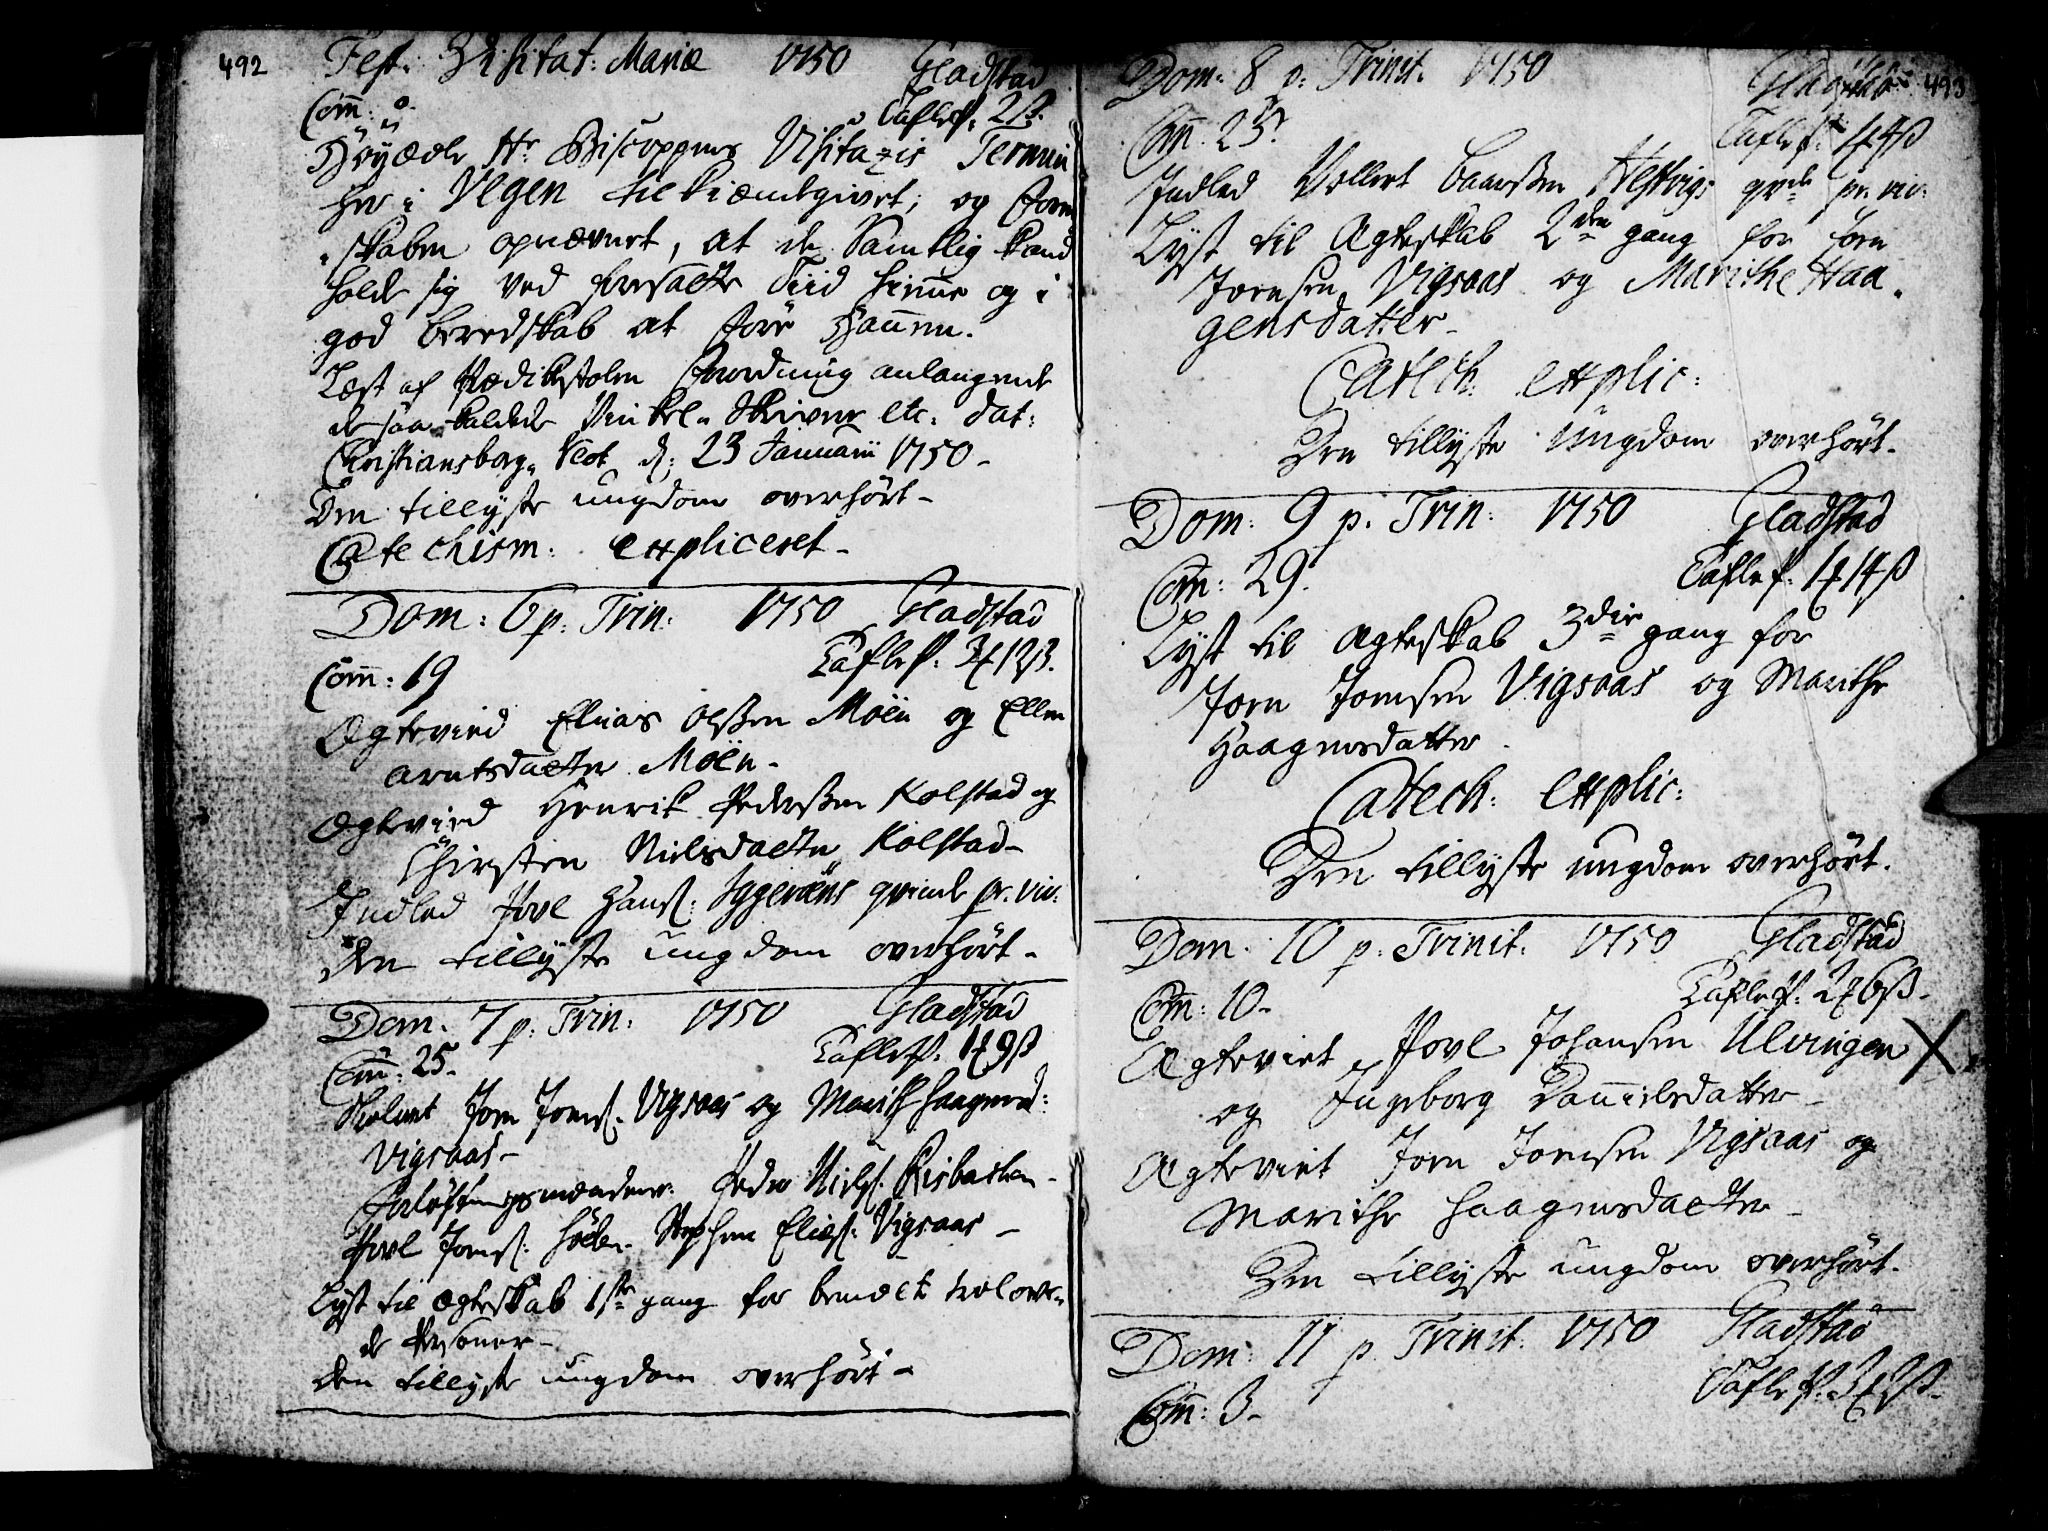 492
Fest: Visitat: Mariæ 1750 Gladstad
Com̅: 0. Tafle ℔: 2 ß.
Höyædle Hr Biscoppens Visitazis Termin
her i Vegen tilkiendgivet; og Form
skaben opnævnt, at de Samtlig kand
holde sig ved forsatte Tiid hiem̅e og i
god beredskab at före Hannem.
Læst af Prædikestolen Forordning anlangende
de saa kaldede Vinkel-Skrivere etc: dat:
Christiansborg Slot d: 23 Januarii 1750-
Den tillyste ungdom overhört-
Catechism: expliceret-
Dom: 6 p: Trin: 1750 Gladstad
Com̅: 19 Tafle ℔: 3 ß.
Ægtevied Elias Olssen Moen og Ellen
Arntsdatter Moen-
Ægtevied Henrik Pederssen Kolstad og
Chirsten Nielsdatter Kolstad-
Indled Povl Hans: qvinde pr. vir:
Den tillyste ungdom overhört-
Dom. 7 p: Trin: 1750 Gladstad
Com̅: 25- Tafle ℔. 1 9 ß
Trolovet Jorn Jorns: Vigsaas og Marith Haagensd:
Vigsaas-
Forlöftningsmændene: Peder Niels: Risbacken-
Povl Jorns: Stephen Elias: Vigsaas-
Lyst til Ægteskab 1ste gang for bemelte trolove-
de Personer-
Den tillyste ungdom overhört-
Dom: 8 p: Trinit: 1750 Gladstad 493
Com̅: 25. Tafle ℔: 4 ß
Indled Vellert qvde pr. vir:
Lyst til Ægteskab 2den gang for Jorn
Jornsen Vigsaas og Marithe Haa-
gensdatter-
Catech: explic:
Den tillyste Ungdom overhört-
Dom: 9 p. Trin: 1750 Gladstad
Com̅: 29. Tafle ℔: 1 14 ß
Lyst til Ægteskab 3die gang for
Jorn Jornsen Vigsaas og Marithe
Haagensdatter.
Catech: explic:
Den tillyste ungdom overhört.
Dom. 10 p: Trinit: 1750 Gladstad
Com̅: 10- Tafle ℔: 2 6 ß-
Ægteviet Povl Johansen Ulvingen X
og Ingeborg Danielsdatter-
Ægteviet Jorn Jornsen Vigsaas og
Marithe Haagensdatter-
Den tillyste ungdom overhört-
Dom: 11 p Trinit: 1750 Gladstad
Com̅: 3- Tafle ℔: 3 ß-